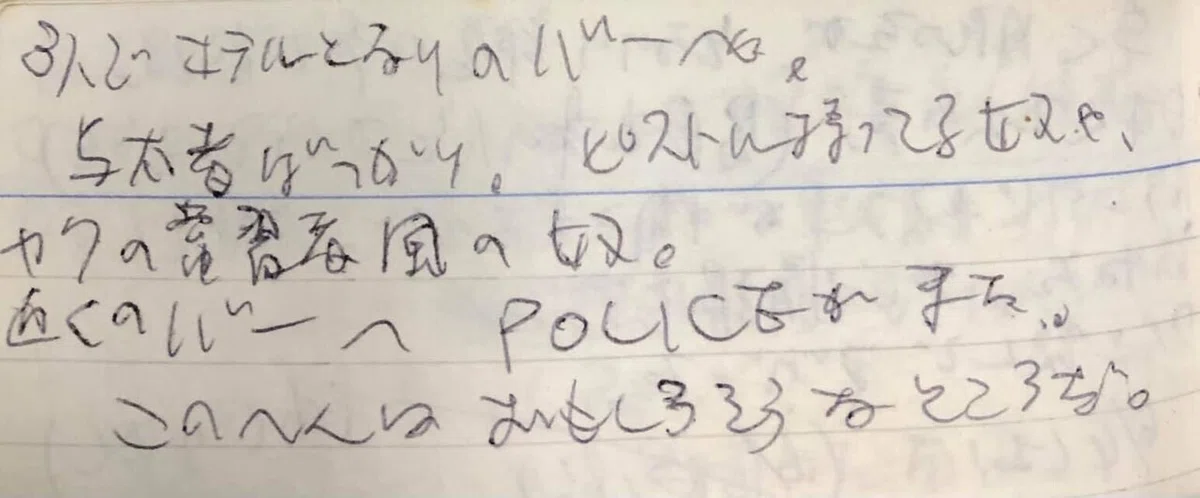 3人でホテルとなりのバーへ。
与太者ばっかり。ピストル持ってる奴や、
ヤクの常習者風の奴。
近くのバーへPOLICEがきた。
このへんはおもしろそうなところだ。